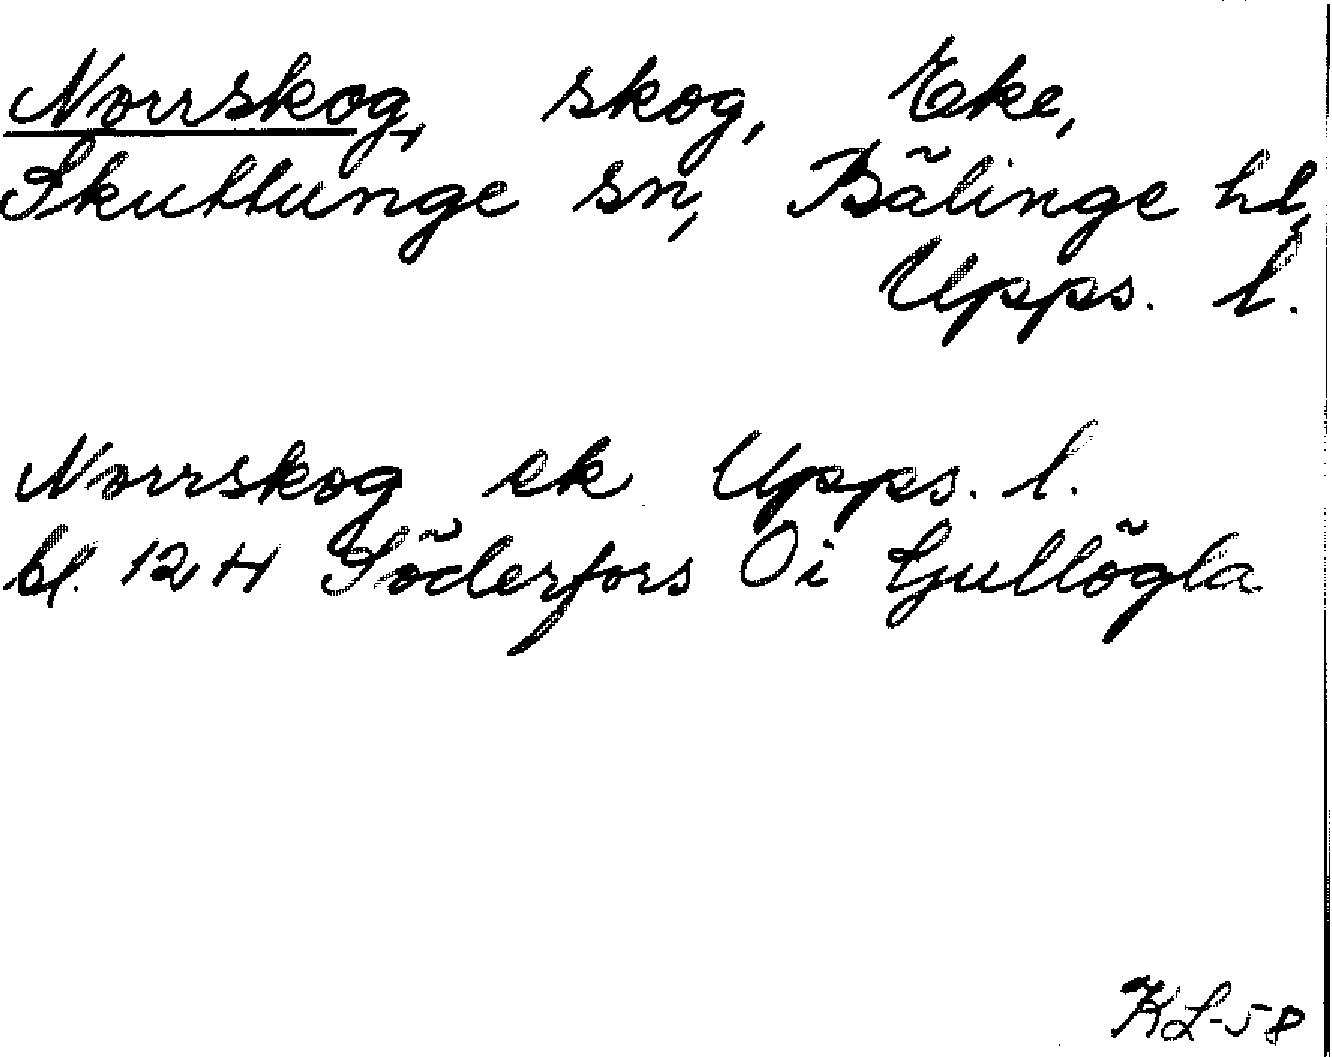 Norrskog, skog, Eke,
Skuttunge sn, Bälinge hd,
Upps. l.
Norrskog ek Upps. l.
bl. 12 H Söderfors O i Gullögla
KL-58